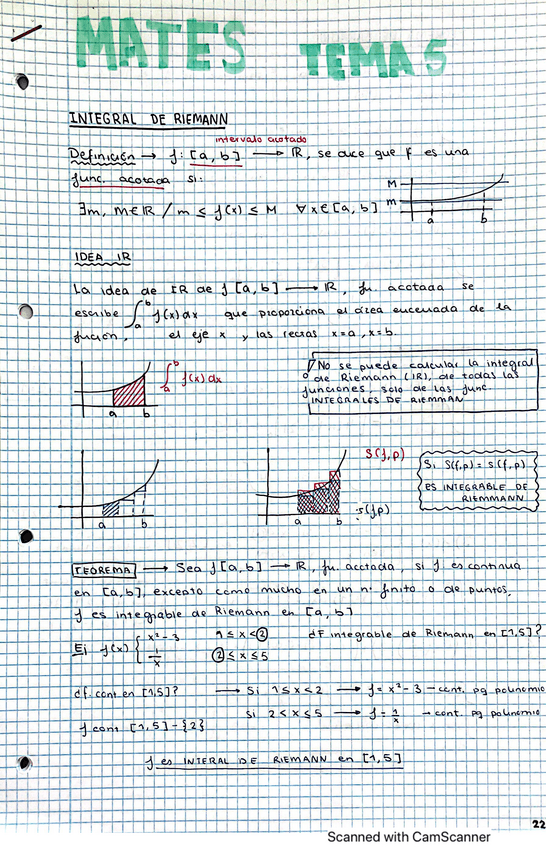 MATES TEMA 5
INTEGRAL DE RIEMANN
intervalo acotado
Definición → f: [a, b] → ℝ, se dice que f es una
func. acotada si:
∃m, M∈ℝ / m ≤ f(x) ≤ M ∀x∈[a, b]
M
m
a b
IDEA IR
La idea de IR de f [a, b] → ℝ, fu. acotada se
escribe ∫_a^b f(x)dx que proporciona el área encerrada de la
función, el eje x y las rectas x=a, x=b.
∫_a^b f(x)dx
a b
No se puede calcular la integral
de Riemann (IR), de todas las
funciones, solo de las func.
INTEGRALES DE RIEMMAN
a b
S(f,p)
s(f,p)
a b
Si S(f,p) = s(f,p)
ES INTEGRABLE DE
RIEMMANN
TEOREMA → Sea f [a, b] → ℝ, fu. acotada, si f es continua
en [a, b], excepto como mucho en un nº finito o de puntos,
f es integrable de Riemann en [a, b]
Ej f(x) { x² - 3 1 ≤ x < 2 ¿f integrable de Riemann en [1,5]?
1/x 2 ≤ x ≤ 5
¿f. cont en [1,5]? → Si 1 ≤ x < 2 → f = x² - 3 - cont. pq polinomio
Si 2 < x ≤ 5 → f = 1/x → cont. pq polinomio
f cont [1,5] - {2}
f es INTERAL DE RIEMANN en [1,5]
22
Scanned with CamScanner